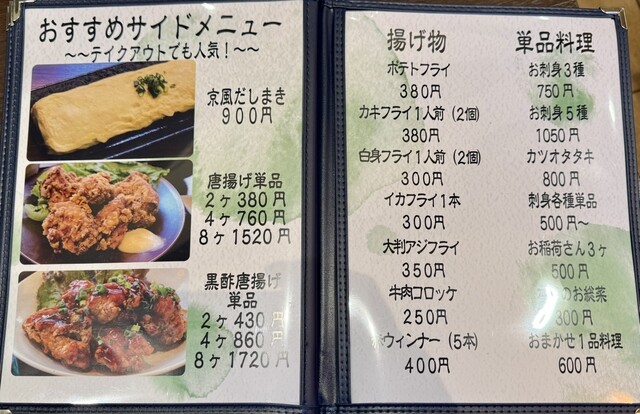 おすすめサイドメニュー
~~テイクアウトでも人気!~~
京風だしまき
900円
唐揚げ単品
2ヶ380円
4ヶ760円
8ヶ1520円
黒酢唐揚げ
単品
2ヶ430円
4ヶ860円
8ヶ1720円
揚げ物
ポテトフライ
380円
カキフライ1人前(2個)
380円
白身フライ1人前(2個)
300円
イカフライ1本
300円
大判アジフライ
350円
牛肉コロッケ
250円
ウィンナー(5本)
400円
単品料理
お刺身3種
750円
お刺身5種
1050円
カツオタタキ
800円
刺身各種単品
500円~
お稲荷さん3ヶ
500円
のお総菜
300円
おまかせ1品料理
600円